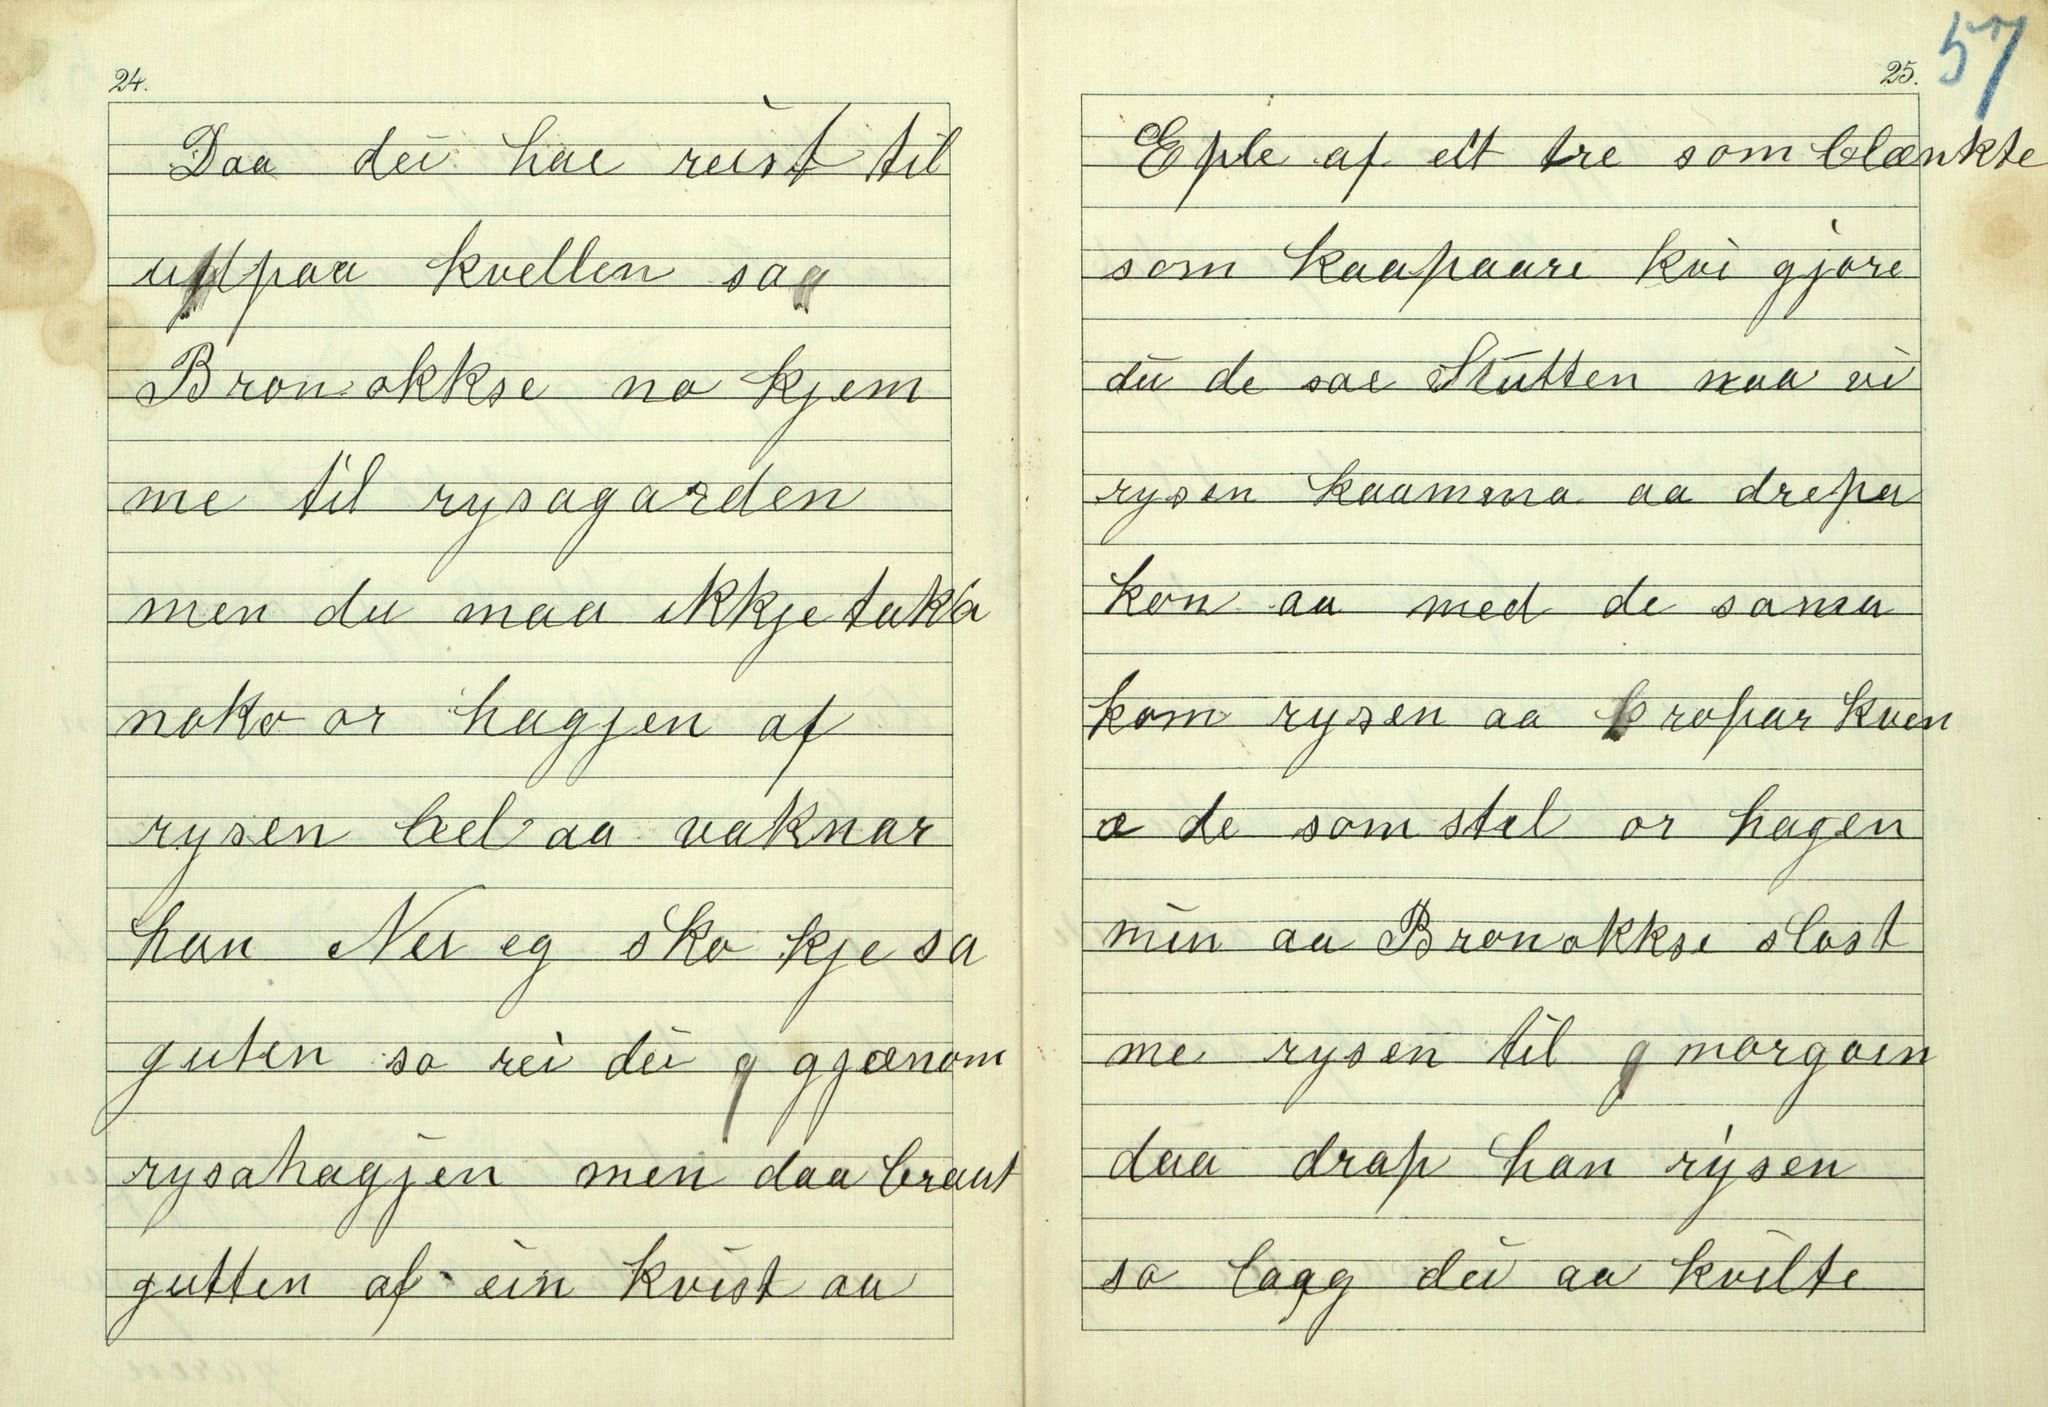 24.
Daa dei hae reist til
uppaa kvellen sag
Bronokkse no kjem
me til rysagarden
men du maa ikkje taka
noko or hagjen af
rysen læl aa vaknar
han Nei eg sko kje sa
guten so rei dei g gjænom
rysahagjen men daa braut
gutten af ein kvist aa
57
25.
Eple af eit tre som blænkte
som kaapaare kvi gjore
du de sae Stutten naa vi
rysen kaamma aa drepa
kon aa med de sama
kom rysen aa kropar kven
æ de som stel or hagen
min aa Bronokkse slost
me rysen til g morgoin
daa drap han rysen
so laag dei aa kvilte